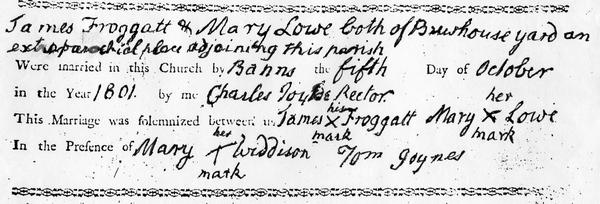 James Froggatt & Mary Lowe both of Brewhouse yard an
extraparochial place adjoining this parish
Were married in this Church by Banns the fifth Day of October
in the Year 1801. by me Charles Rector.
his her
This Marriage was solemnized between us James X Froggatt Mary X Lowe
mark mark
her
In the Presence of Mary X Widdison Tom Joynes
mark